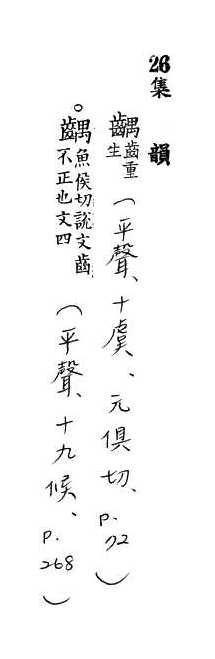 26集韻
齵齒重生(平聲、十虞、元俱切、p.72)
○齵魚侯切說文齒不正也文四(平聲、十九候、p.268)